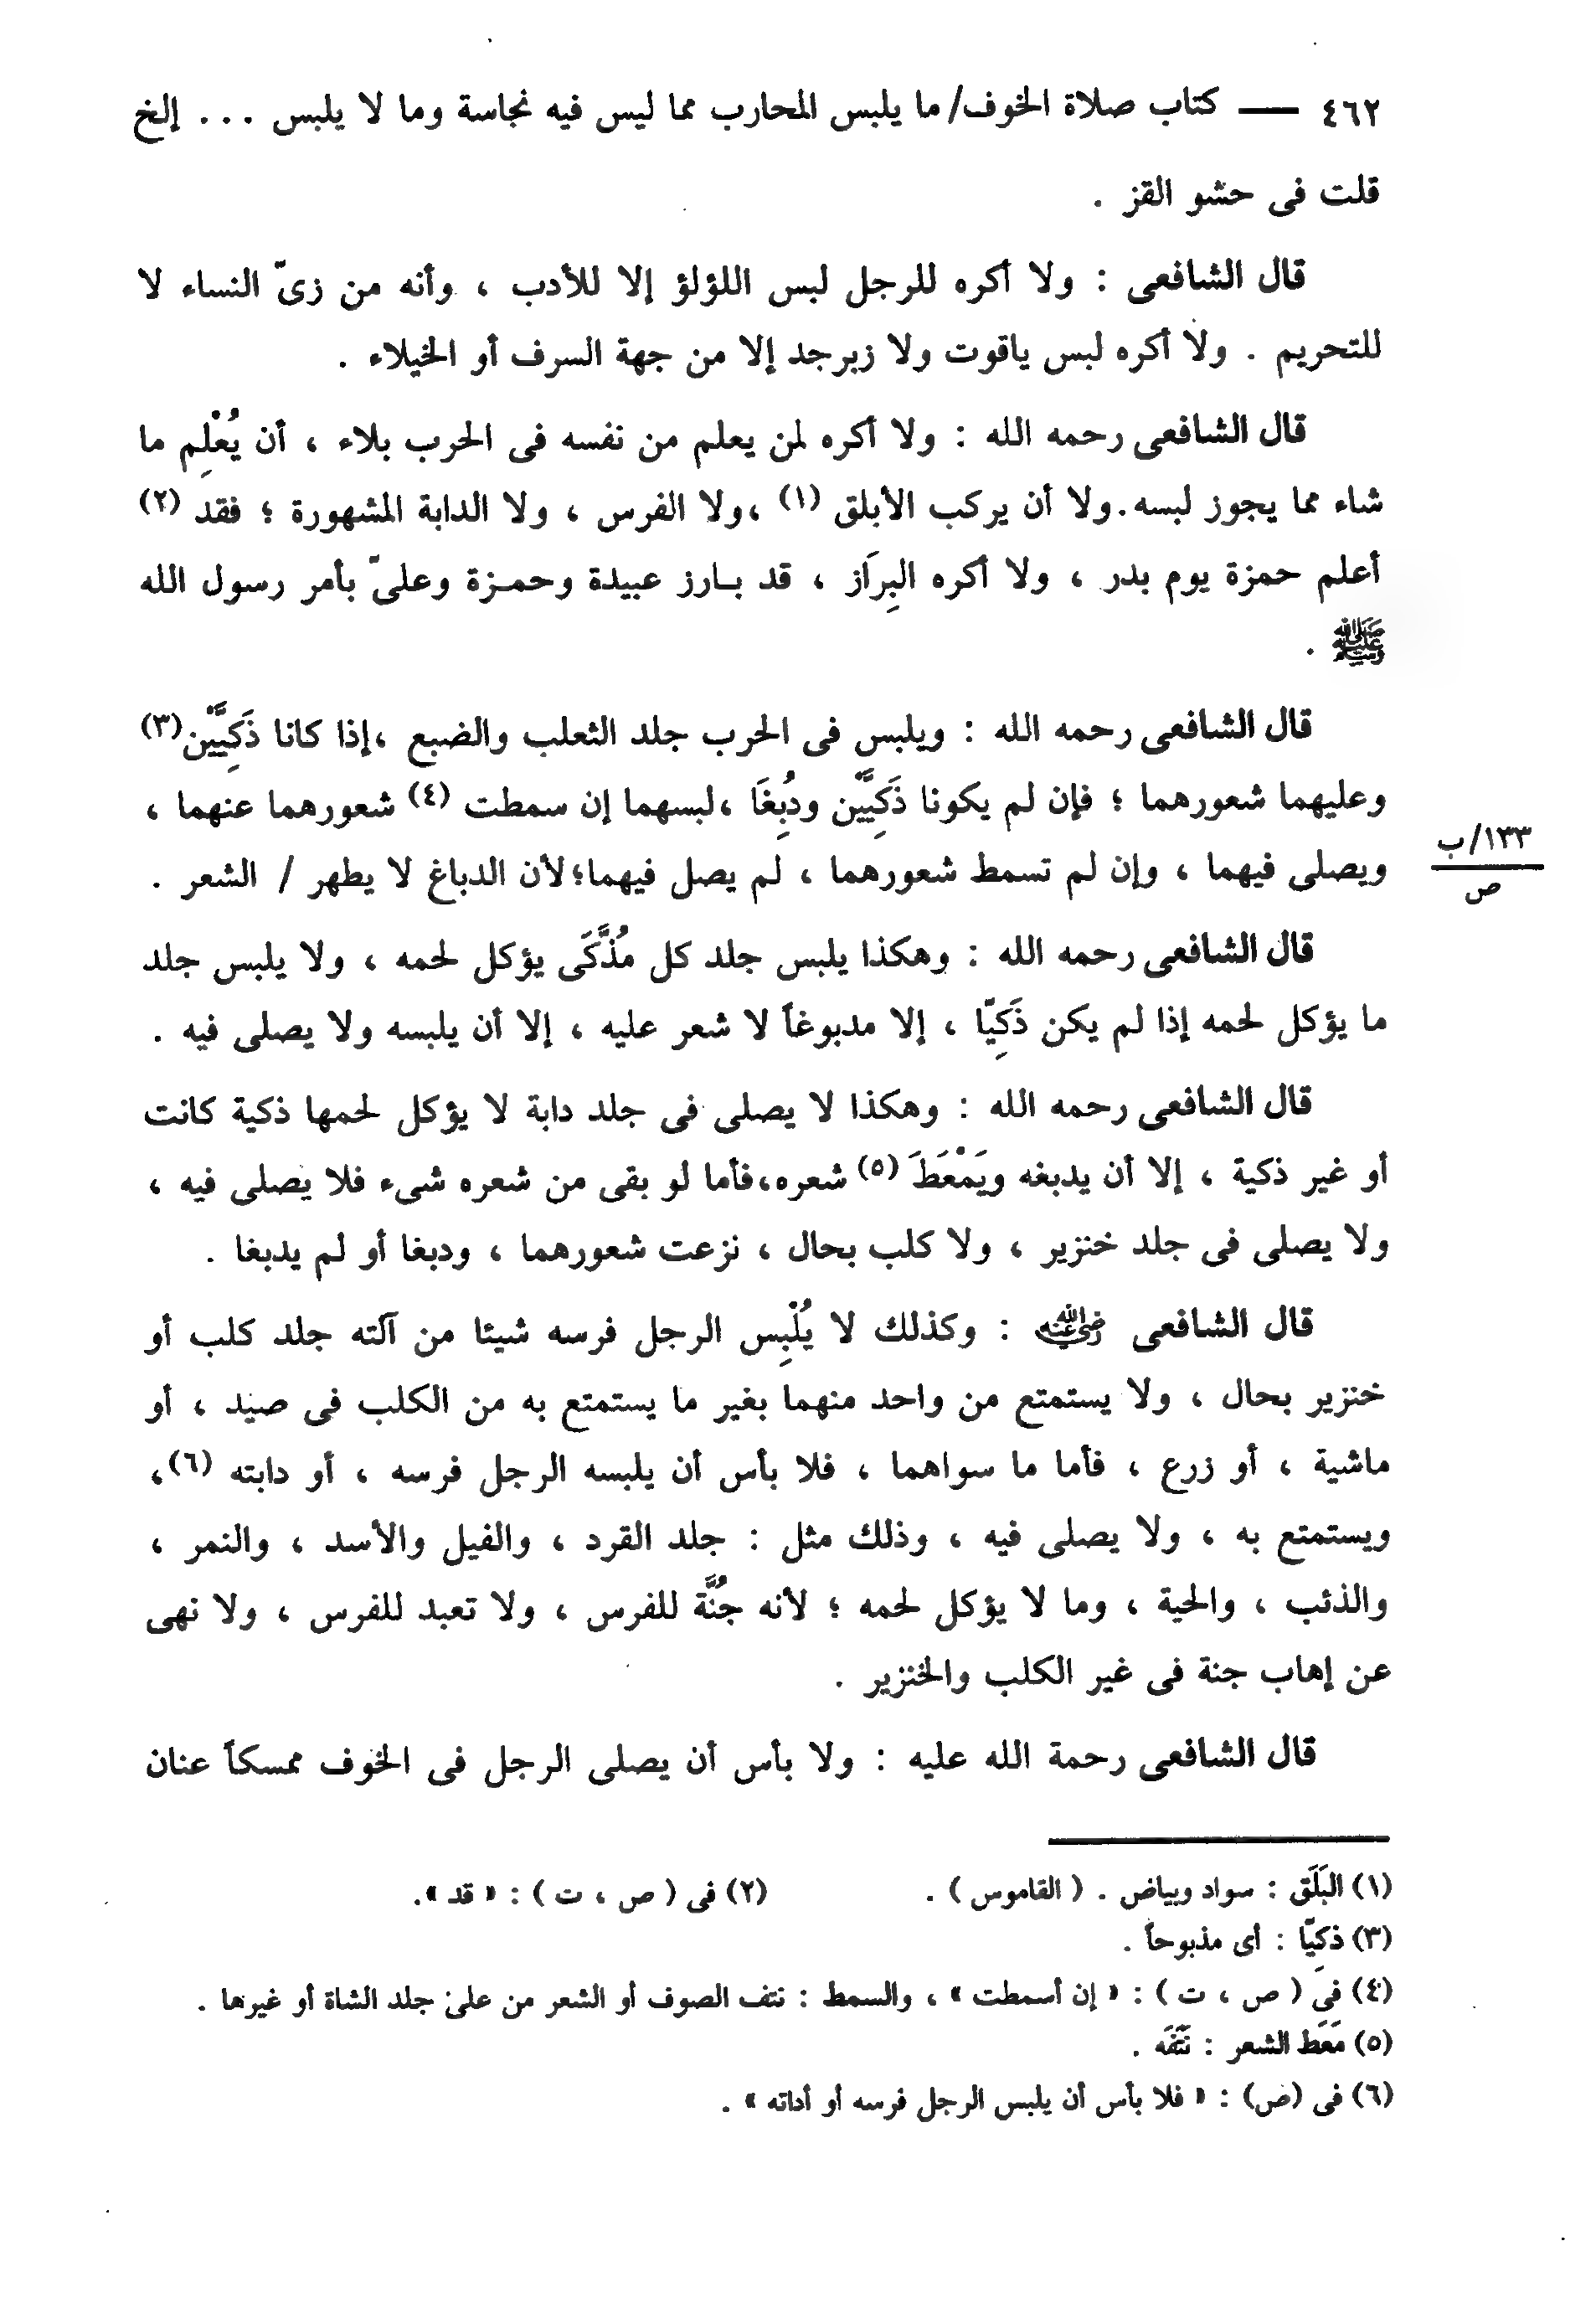 ٤٦٢ — كتاب صلاة الخوف/ ما يلبس المحارب مما ليس فيه نجاسة وما لا يلبس ... إلخ
قلت فى حشو القز .
قال الشافعى : ولا أكره للرجل لبس اللؤلؤ إلا للأدب ، وأنه من زىّ النساء لا
للتحريم . ولا أكره لبس ياقوت ولا زبرجد إلا من جهة السرف أو الخيلاء .
قال الشافعى رحمه الله : ولا أكره لمن يعلم من نفسه فى الحرب بلاء ، أن يُعْلِم ما
شاء مما يجوز لبسه.ولا أن يركب الأبلق (١) ،ولا الفرس ، ولا الدابة المشهورة ؛ فقد (٢)
أعلم حمزة يوم بدر ، ولا أكره البِرَاز ، قد بـارز عبيدة وحمـزة وعلىّ بأمر رسول الله
ﷺ .
قال الشافعى رحمه الله : ويلبس فى الحرب جلد الثعلب والضبع ،إذا كانا ذَكِيَّيْن(٣)
وعليهما شعورهما ؛ فإن لم يكونا ذَكِيَّيْن ودُبِغَا ،لبسهما إن سمطت (٤) شعورهما عنهما ،
ويصلى فيهما ، وإن لم تسمط شعورهما ، لم يصل فيهما؛لأن الدباغ لا يطهر / الشعر .
١٣٣/ب
ص
قال الشافعى رحمه الله : وهكذا يلبس جلد كل مُذَّكَى يؤكل لحمه ، ولا يلبس جلد
ما يؤكل لحمه إذا لم يكن ذَكِيّا ، إلا مدبوغاً لا شعر عليه ، إلا أن يلبسه ولا يصلى فيه .
قال الشافعى رحمه الله : وهكذا لا يصلى فى جلد دابة لا يؤكل لحمها ذكية كانت
أو غير ذكية ، إلا أن يدبغه ويَمْعَطَ (٥) شعره،فأما لو بقى من شعره شىء فلا يصلى فيه ،
ولا يصلى فى جلد خنزير ، ولا كلب بحال ، نزعت شعورهما ، ودبغا أو لم يدبغا .
قال الشافعى رضي الله عنه : وكذلك لا يُلْبِس الرجل فرسه شيئا من آلته جلد كلب أو
خنزير بحال ، ولا يستمتع من واحد منهما بغير ما يستمتع به من الكلب فى صيد ، أو
ماشية ، أو زرع ، فأما ما سواهما ، فلا بأس أن يلبسه الرجل فرسه ، أو دابته (٦)،
ويستمتع به ، ولا يصلى فيه ، وذلك مثل : جلد القرد ، والفيل والأسد ، والنمر ،
والذئب ، والحية ، وما لا يؤكل لحمه ؛ لأنه جُنَّة للفرس ، ولا تعبد للفرس ، ولا نهى
عن إهاب جنة فى غير الكلب والخنزير .
قال الشافعى رحمة الله عليه : ولا بأس أن يصلى الرجل فى الخوف ممسكاً عنان
(١) البَلَق : سواد وبياض . ( القاموس ) . (٢) فى ( ص ، ت ) : « قد ».
(٣) ذكِيّا : أى مذبوحاً .
(٤) فى ( ص ، ت ) : « إن أسمطت » ، والسمط : نتف الصوف أو الشعر من على جلد الشاة أو غيرها .
(٥) مَعَط الشعر : نَتَفَه .
(٦) فى (ص) : « فلا بأس أن يلبس الرجل فرسه أو أداته » .